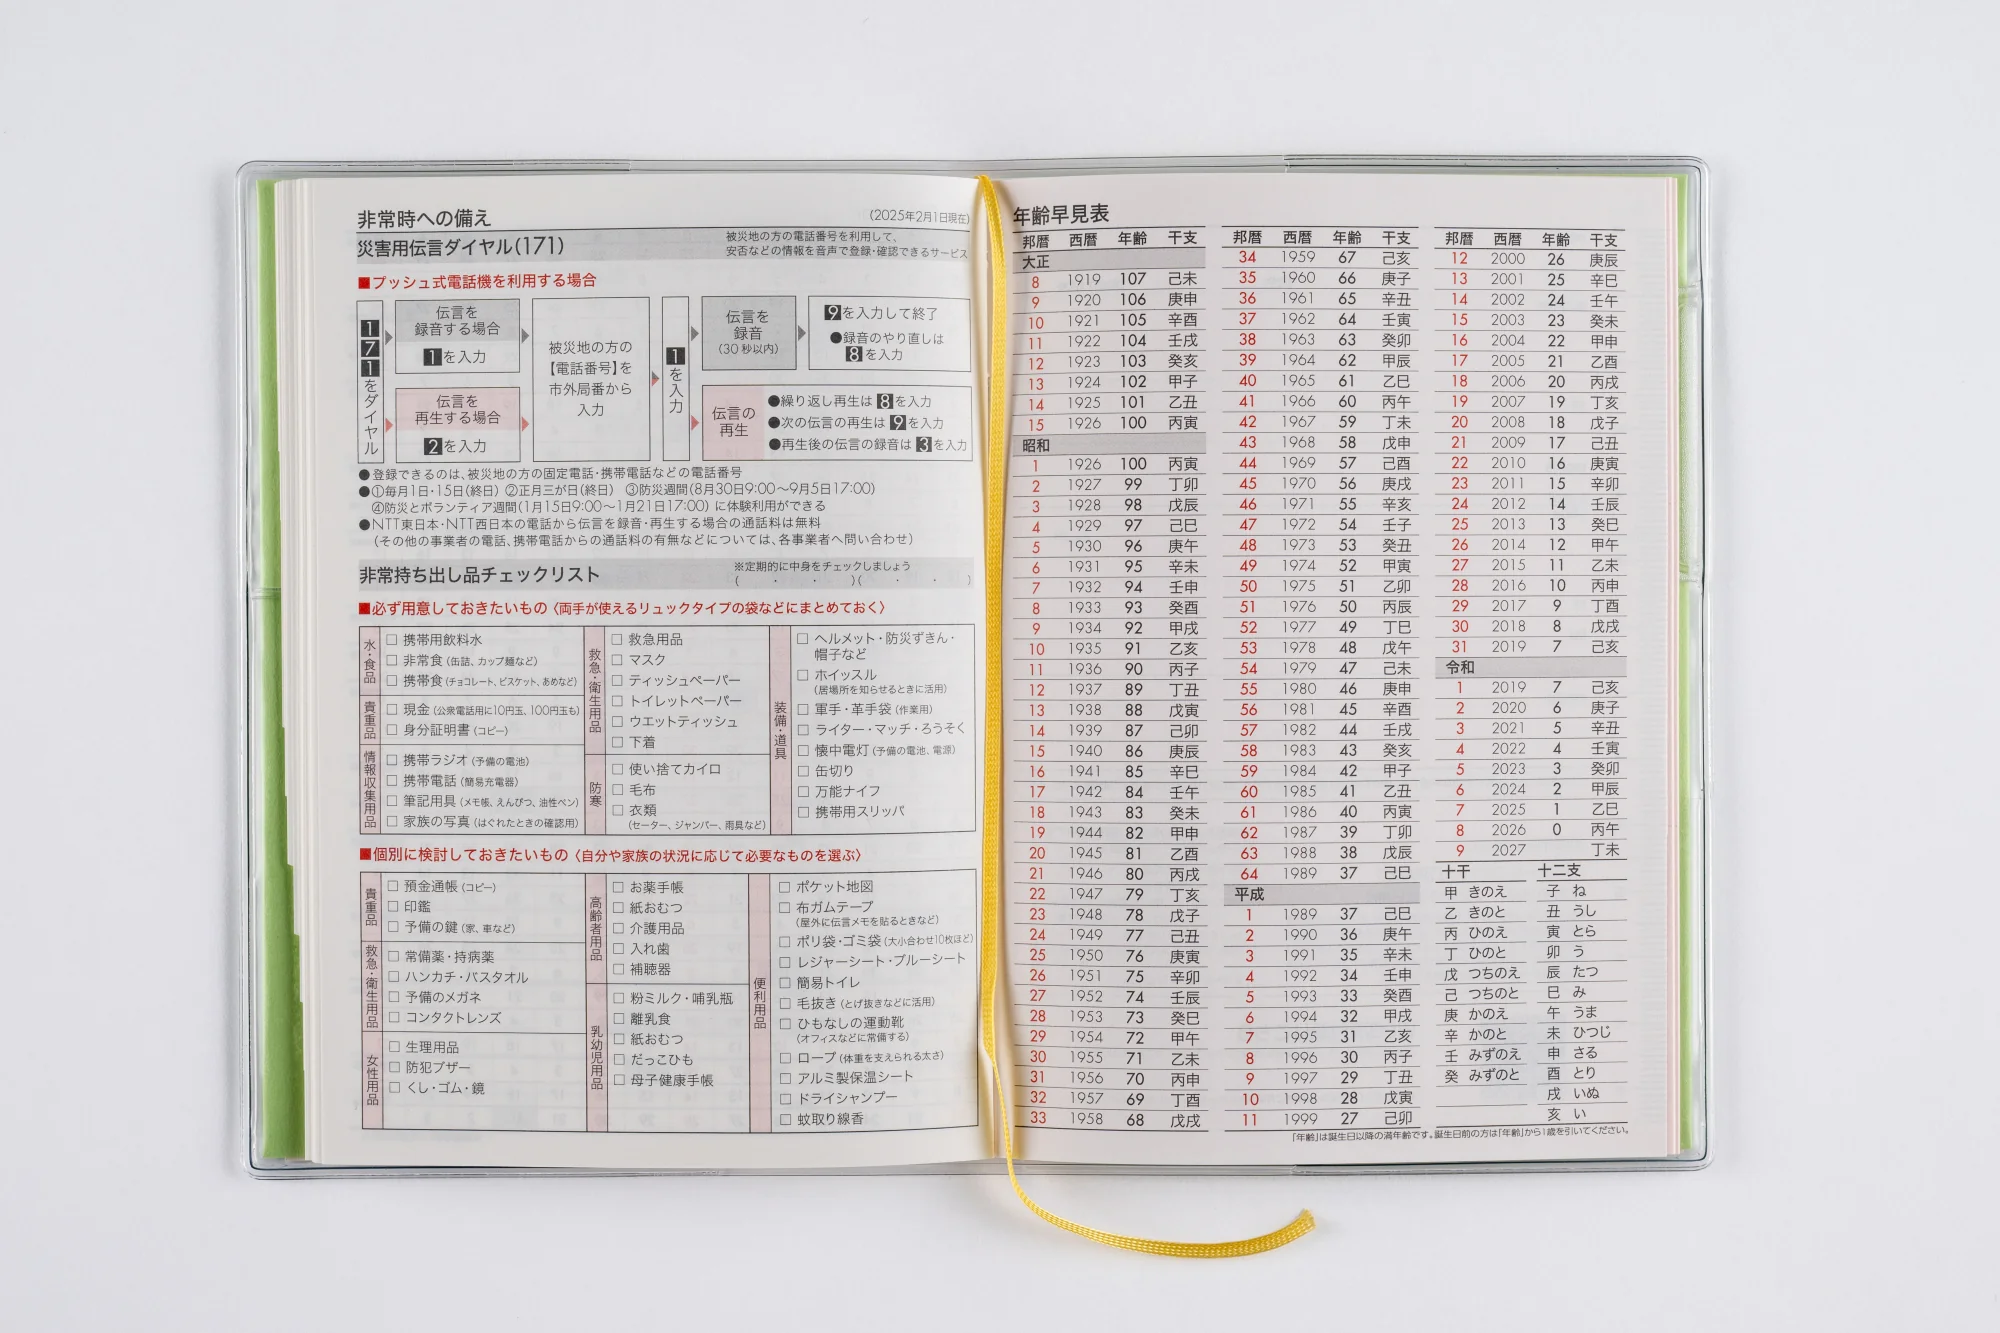 非常時への備え
(2025年2月1日現在)
災害用伝言ダイヤル(171)
被災地の方の電話番号を利用して、
安否などの情報を音声で登録・確認できるサービス
■プッシュ式電話機を利用する場合
171をダイヤル
伝言を
録音する場合
1を入力
伝言を
再生する場合
2を入力
被災地の方の
【電話番号】を
市外局番から
入力
1を入力
伝言を
録音
(30秒以内)
9を入力して終了
●録音のやり直しは
8を入力
伝言の
再生
●繰り返し再生は8を入力
●次の伝言の再生は9を入力
●再生後の伝言の録音は3を入力
●登録できるのは、被災地の方の固定電話・携帯電話などの電話番号
●①毎月1日・15日(終日) ②正月三が日(終日) ③防災週間(8月30日9:00〜9月5日17:00)
④防災とボランティア週間(1月15日9:00〜1月21日17:00) に体験利用ができる
●NTT東日本・NTT西日本の電話から伝言を録音・再生する場合の通話料は無料
(その他の事業者の電話、携帯電話からの通話料の有無などについては、各事業者へ問い合わせ)
非常持ち出し品チェックリスト
※定期的に中身をチェックしましょう
( ・ ・ )( ・ ・ )
■必ず用意しておきたいもの〈両手が使えるリュックタイプの袋などにまとめておく〉
水・食品
□ 携帯用飲料水
□ 非常食(缶詰、カップ麺など)
□ 携帯食(チョコレート、ビスケット、あめなど)
貴重品
□ 現金(公衆電話用に10円玉、100円玉も)
□ 身分証明書(コピー)
情報収集用品
□ 携帯ラジオ(予備の電池)
□ 携帯電話(簡易充電器)
□ 筆記用具(メモ帳、えんぴつ、油性ペン)
□ 家族の写真(はぐれたときの確認用)
救急・衛生用品
□ 救急用品
□ マスク
□ ティッシュペーパー
□ トイレットペーパー
□ ウエットティッシュ
□ 下着
防寒
□ 使い捨てカイロ
□ 毛布
□ 衣類
(セーター、ジャンパー、雨具など)
装備・道具
□ ヘルメット・防災ずきん・
帽子など
□ ホイッスル
(居場所を知らせるときに活用)
□ 軍手・革手袋(作業用)
□ ライター・マッチ・ろうそく
□ 懐中電灯(予備の電池、電源)
□ 缶切り
□ 万能ナイフ
□ 携帯用スリッパ
■個別に検討しておきたいもの〈自分や家族の状況に応じて必要なものを選ぶ〉
貴重品
□ 預金通帳(コピー)
□ 印鑑
□ 予備の鍵(家、車など)
救急・衛生用品
□ 常備薬・持病薬
□ ハンカチ・バスタオル
□ 予備のメガネ
□ コンタクトレンズ
女性用品
□ 生理用品
□ 防犯ブザー
□ くし・ゴム・鏡
高齢者用品
□ お薬手帳
□ 紙おむつ
□ 介護用品
□ 入れ歯
□ 補聴器
乳幼児用品
□ 粉ミルク・哺乳瓶
□ 離乳食
□ 紙おむつ
□ だっこひも
□ 母子健康手帳
便利用品
□ ポケット地図
□ 布ガムテープ
(屋外に伝言メモを貼るときなど)
□ ポリ袋・ゴミ袋(大小合わせ10枚ほど)
□ レジャーシート・ブルーシート
□ 簡易トイレ
□ 毛抜き(とげ抜きなどに活用)
□ ひもなしの運動靴
(オフィスなどに常備する)
□ ロープ(体重を支えられる太さ)
□ アルミ製保温シート
□ ドライシャンプー
□ 蚊取り線香
年齢早見表
邦暦 西暦 年齢 干支
大正
8 1919 107 己未
9 1920 106 庚申
10 1921 105 辛酉
11 1922 104 壬戌
12 1923 103 癸亥
13 1924 102 甲子
14 1925 101 乙丑
15 1926 100 丙寅
昭和
1 1926 100 丙寅
2 1927 99 丁卯
3 1928 98 戊辰
4 1929 97 己巳
5 1930 96 庚午
6 1931 95 辛未
7 1932 94 壬申
8 1933 93 癸酉
9 1934 92 甲戌
10 1935 91 乙亥
11 1936 90 丙子
12 1937 89 丁丑
13 1938 88 戊寅
14 1939 87 己卯
15 1940 86 庚辰
16 1941 85 辛巳
17 1942 84 壬午
18 1943 83 癸未
19 1944 82 甲申
20 1945 81 乙酉
21 1946 80 丙戌
22 1947 79 丁亥
23 1948 78 戊子
24 1949 77 己丑
25 1950 76 庚寅
26 1951 75 辛卯
27 1952 74 壬辰
28 1953 73 癸巳
29 1954 72 甲午
30 1955 71 乙未
31 1956 70 丙申
32 1957 69 丁酉
33 1958 68 戊戌
邦暦 西暦 年齢 干支
34 1959 67 己亥
35 1960 66 庚子
36 1961 65 辛丑
37 1962 64 壬寅
38 1963 63 癸卯
39 1964 62 甲辰
40 1965 61 乙巳
41 1966 60 丙午
42 1967 59 丁未
43 1968 58 戊申
44 1969 57 己酉
45 1970 56 庚戌
46 1971 55 辛亥
47 1972 54 壬子
48 1973 53 癸丑
49 1974 52 甲寅
50 1975 51 乙卯
51 1976 50 丙辰
52 1977 49 丁巳
53 1978 48 戊午
54 1979 47 己未
55 1980 46 庚申
56 1981 45 辛酉
57 1982 44 壬戌
58 1983 43 癸亥
59 1984 42 甲子
60 1985 41 乙丑
61 1986 40 丙寅
62 1987 39 丁卯
63 1988 38 戊辰
64 1989 37 己巳
平成
1 1989 37 己巳
2 1990 36 庚午
3 1991 35 辛未
4 1992 34 壬申
5 1993 33 癸酉
6 1994 32 甲戌
7 1995 31 乙亥
8 1996 30 丙子
9 1997 29 丁丑
10 1998 28 戊寅
11 1999 27 己卯
邦暦 西暦 年齢 干支
12 2000 26 庚辰
13 2001 25 辛巳
14 2002 24 壬午
15 2003 23 癸未
16 2004 22 甲申
17 2005 21 乙酉
18 2006 20 丙戌
19 2007 19 丁亥
20 2008 18 戊子
21 2009 17 己丑
22 2010 16 庚寅
23 2011 15 辛卯
24 2012 14 壬辰
25 2013 13 癸巳
26 2014 12 甲午
27 2015 11 乙未
28 2016 10 丙申
29 2017 9 丁酉
30 2018 8 戊戌
31 2019 7 己亥
令和
1 2019 7 己亥
2 2020 6 庚子
3 2021 5 辛丑
4 2022 4 壬寅
5 2023 3 癸卯
6 2024 2 甲辰
7 2025 1 乙巳
8 2026 0 丙午
9 2027 丁未
十干 十二支
甲 きのえ 子 ね
乙 きのと 丑 うし
丙 ひのえ 寅 とら
丁 ひのと 卯 う
戊 つちのえ 辰 たつ
己 つちのと 巳 み
庚 かのえ 午 うま
辛 かのと 未 ひつじ
壬 みずのえ 申 さる
癸 みずのと 酉 とり
戌 いぬ
亥 い
「年齢」は誕生日以降の満年齢です。誕生日前の方は「年齢」から1歳を引いてください。